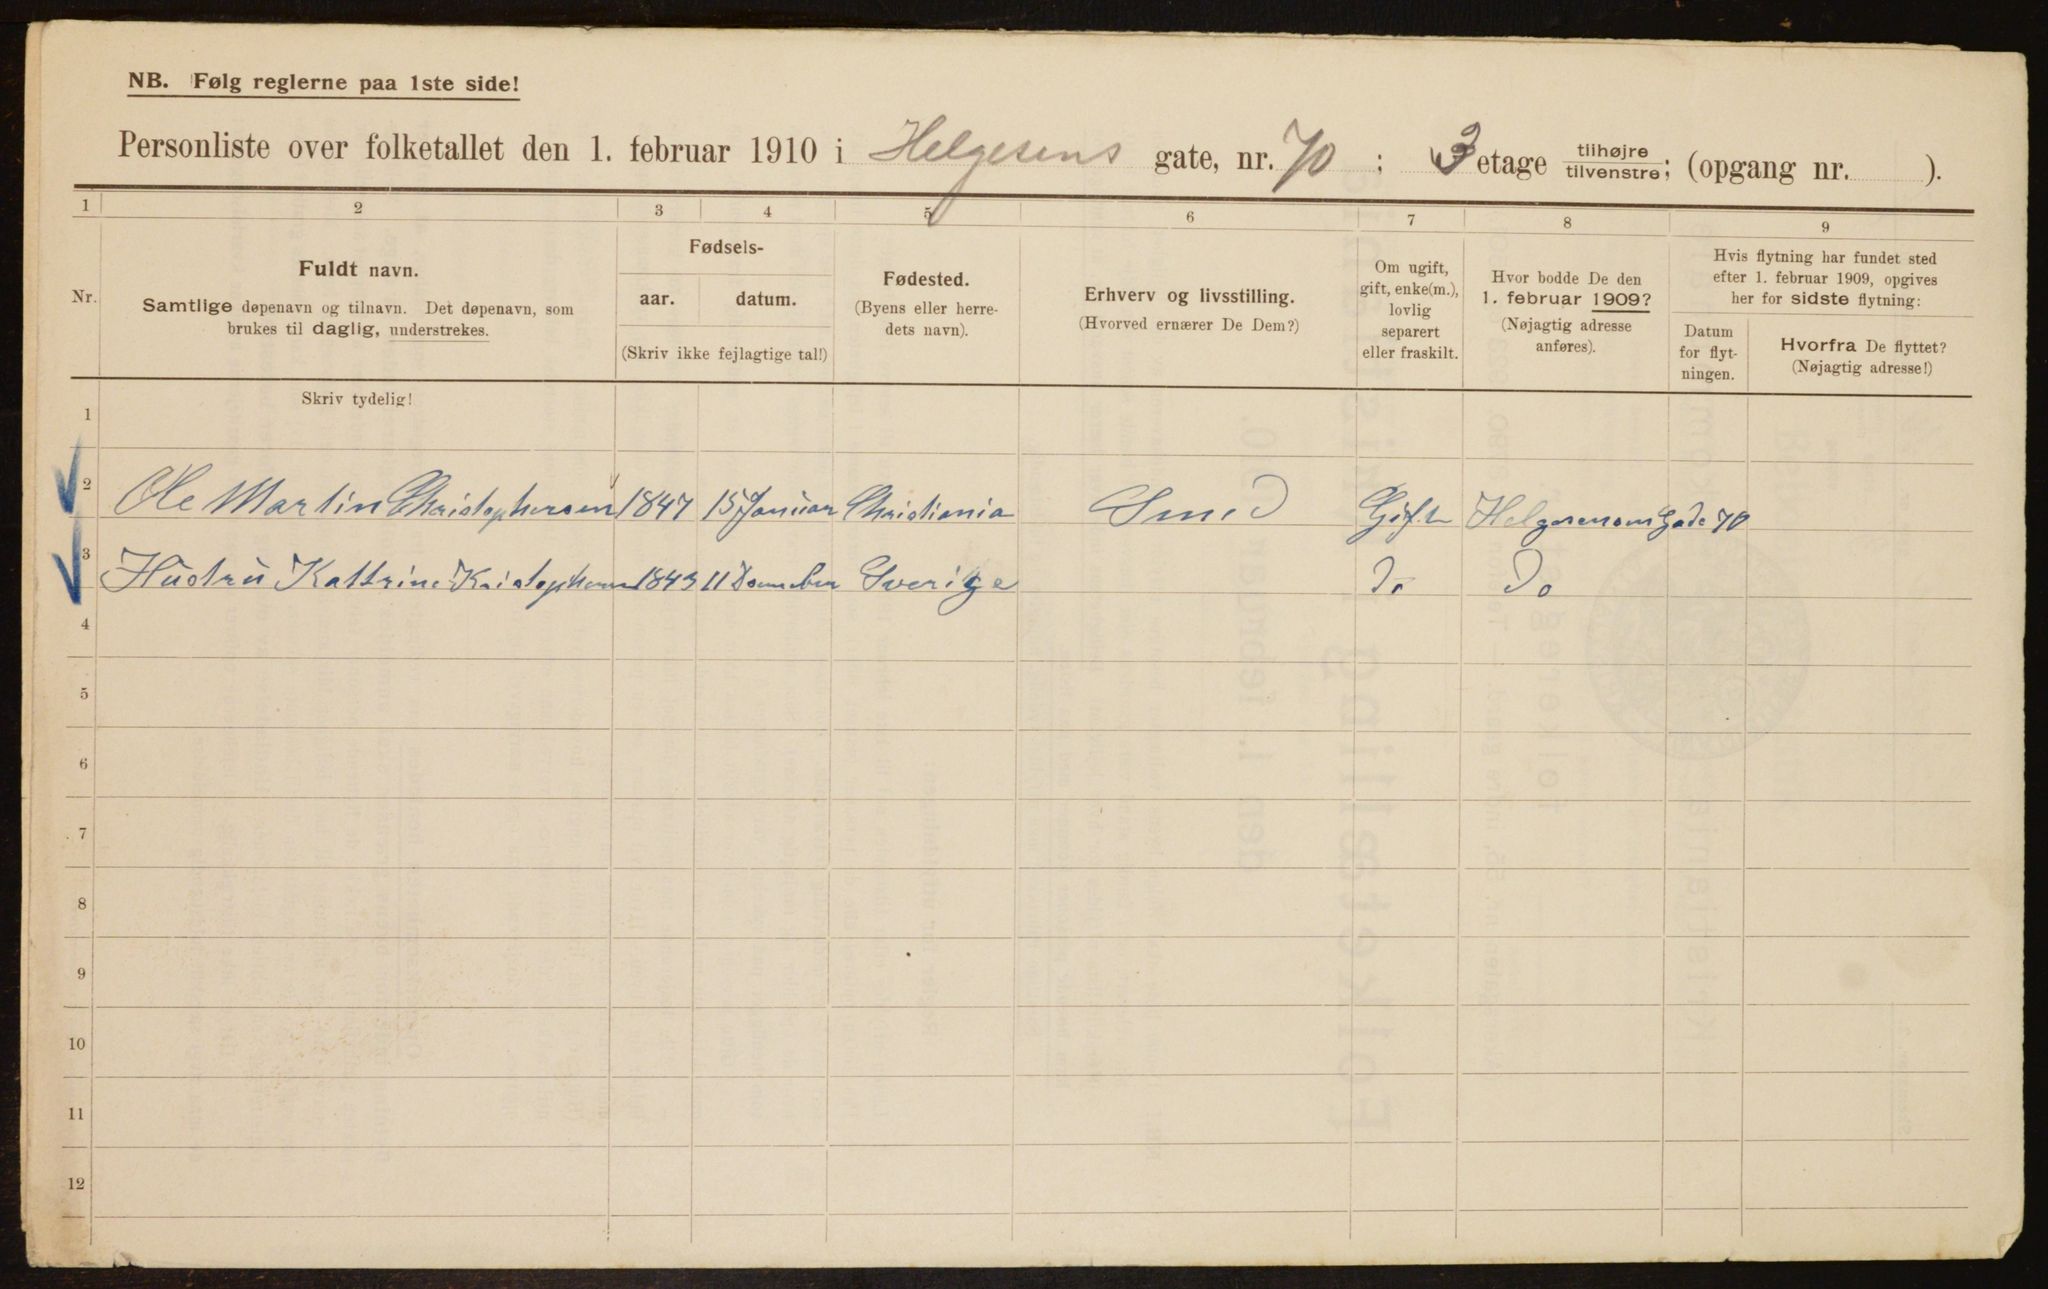 NB. Følg reglerne paa 1ste side!
Personliste over folketallet den 1. februar 1910 i Helgesens gate, nr. 70 ; 3 etage tilhøjre/tilvenstre; (opgang nr. ).
1 2 3 4 5 6 7 8 9
Nr.
Fuldt navn.
Samtlige døpenavn og tilnavn. Det døpenavn, som
brukes til daglig, understrekes.
Fødsels-
aar. datum.
(Skriv ikke fejlagtige tal!)
Fødested.
(Byens eller herre-
dets navn).
Erhverv og livsstilling.
(Hvorved ernærer De Dem?)
Om ugift,
gift, enke(m.),
lovlig
separert
eller fraskilt.
Hvor bodde De den
1. februar 1909?
(Nøjagtig adresse
anføres).
Hvis flytning har fundet sted
efter 1. februar 1909, opgives
her for sidste flytning:
Datum
for flyt-
ningen.
Hvorfra De flyttet?
(Nøjagtig adresse!)
Skriv tydelig!
1
2 Ole Martin Christophersen 1847 15 Januar Christiania Smed Gift Helgesensgade 70
3 Hustru Kattrine Kristophersen 1843 11 Sverige Do Do
4
5
6
7
8
9
10
11
12